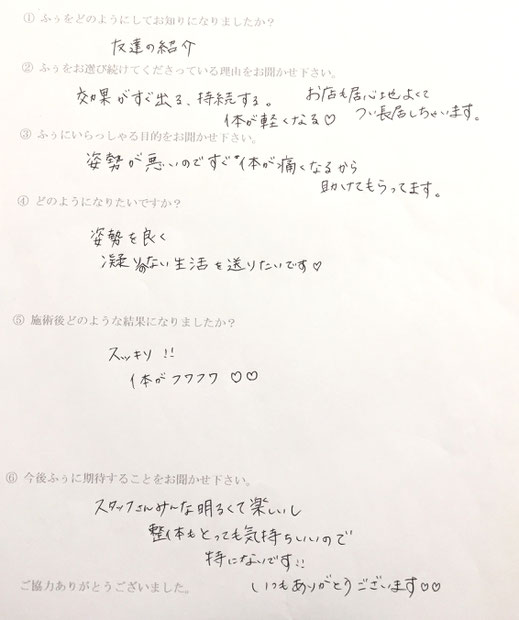 ① ふぅをどのようにしてお知りになりましたか?
友達の紹介
② ふぅをお選び続けてくださっている理由をお聞かせ下さい。
効果がすぐ出る、持続する。 お店も居心地よくて
体が軽くなる♡ つい長居しちゃいます。
③ ふぅにいらっしゃる目的をお聞かせ下さい。
姿勢が悪いのですぐ体が痛くなるから
助けてもらってます。
④ どのようになりたいですか?
姿勢を良く
凝らない生活を送りたいです♡
⑤ 施術後どのような結果になりましたか?
スッキリ!!
体がフワフワ ♡♡
⑥ 今後ふぅに期待することをお聞かせ下さい。
スタッフさんみんな明るくて楽しいし
整体もとっても気持ちいいので
特にないです!!
ご協力ありがとうございました。 いつもありがとうございます♡♡